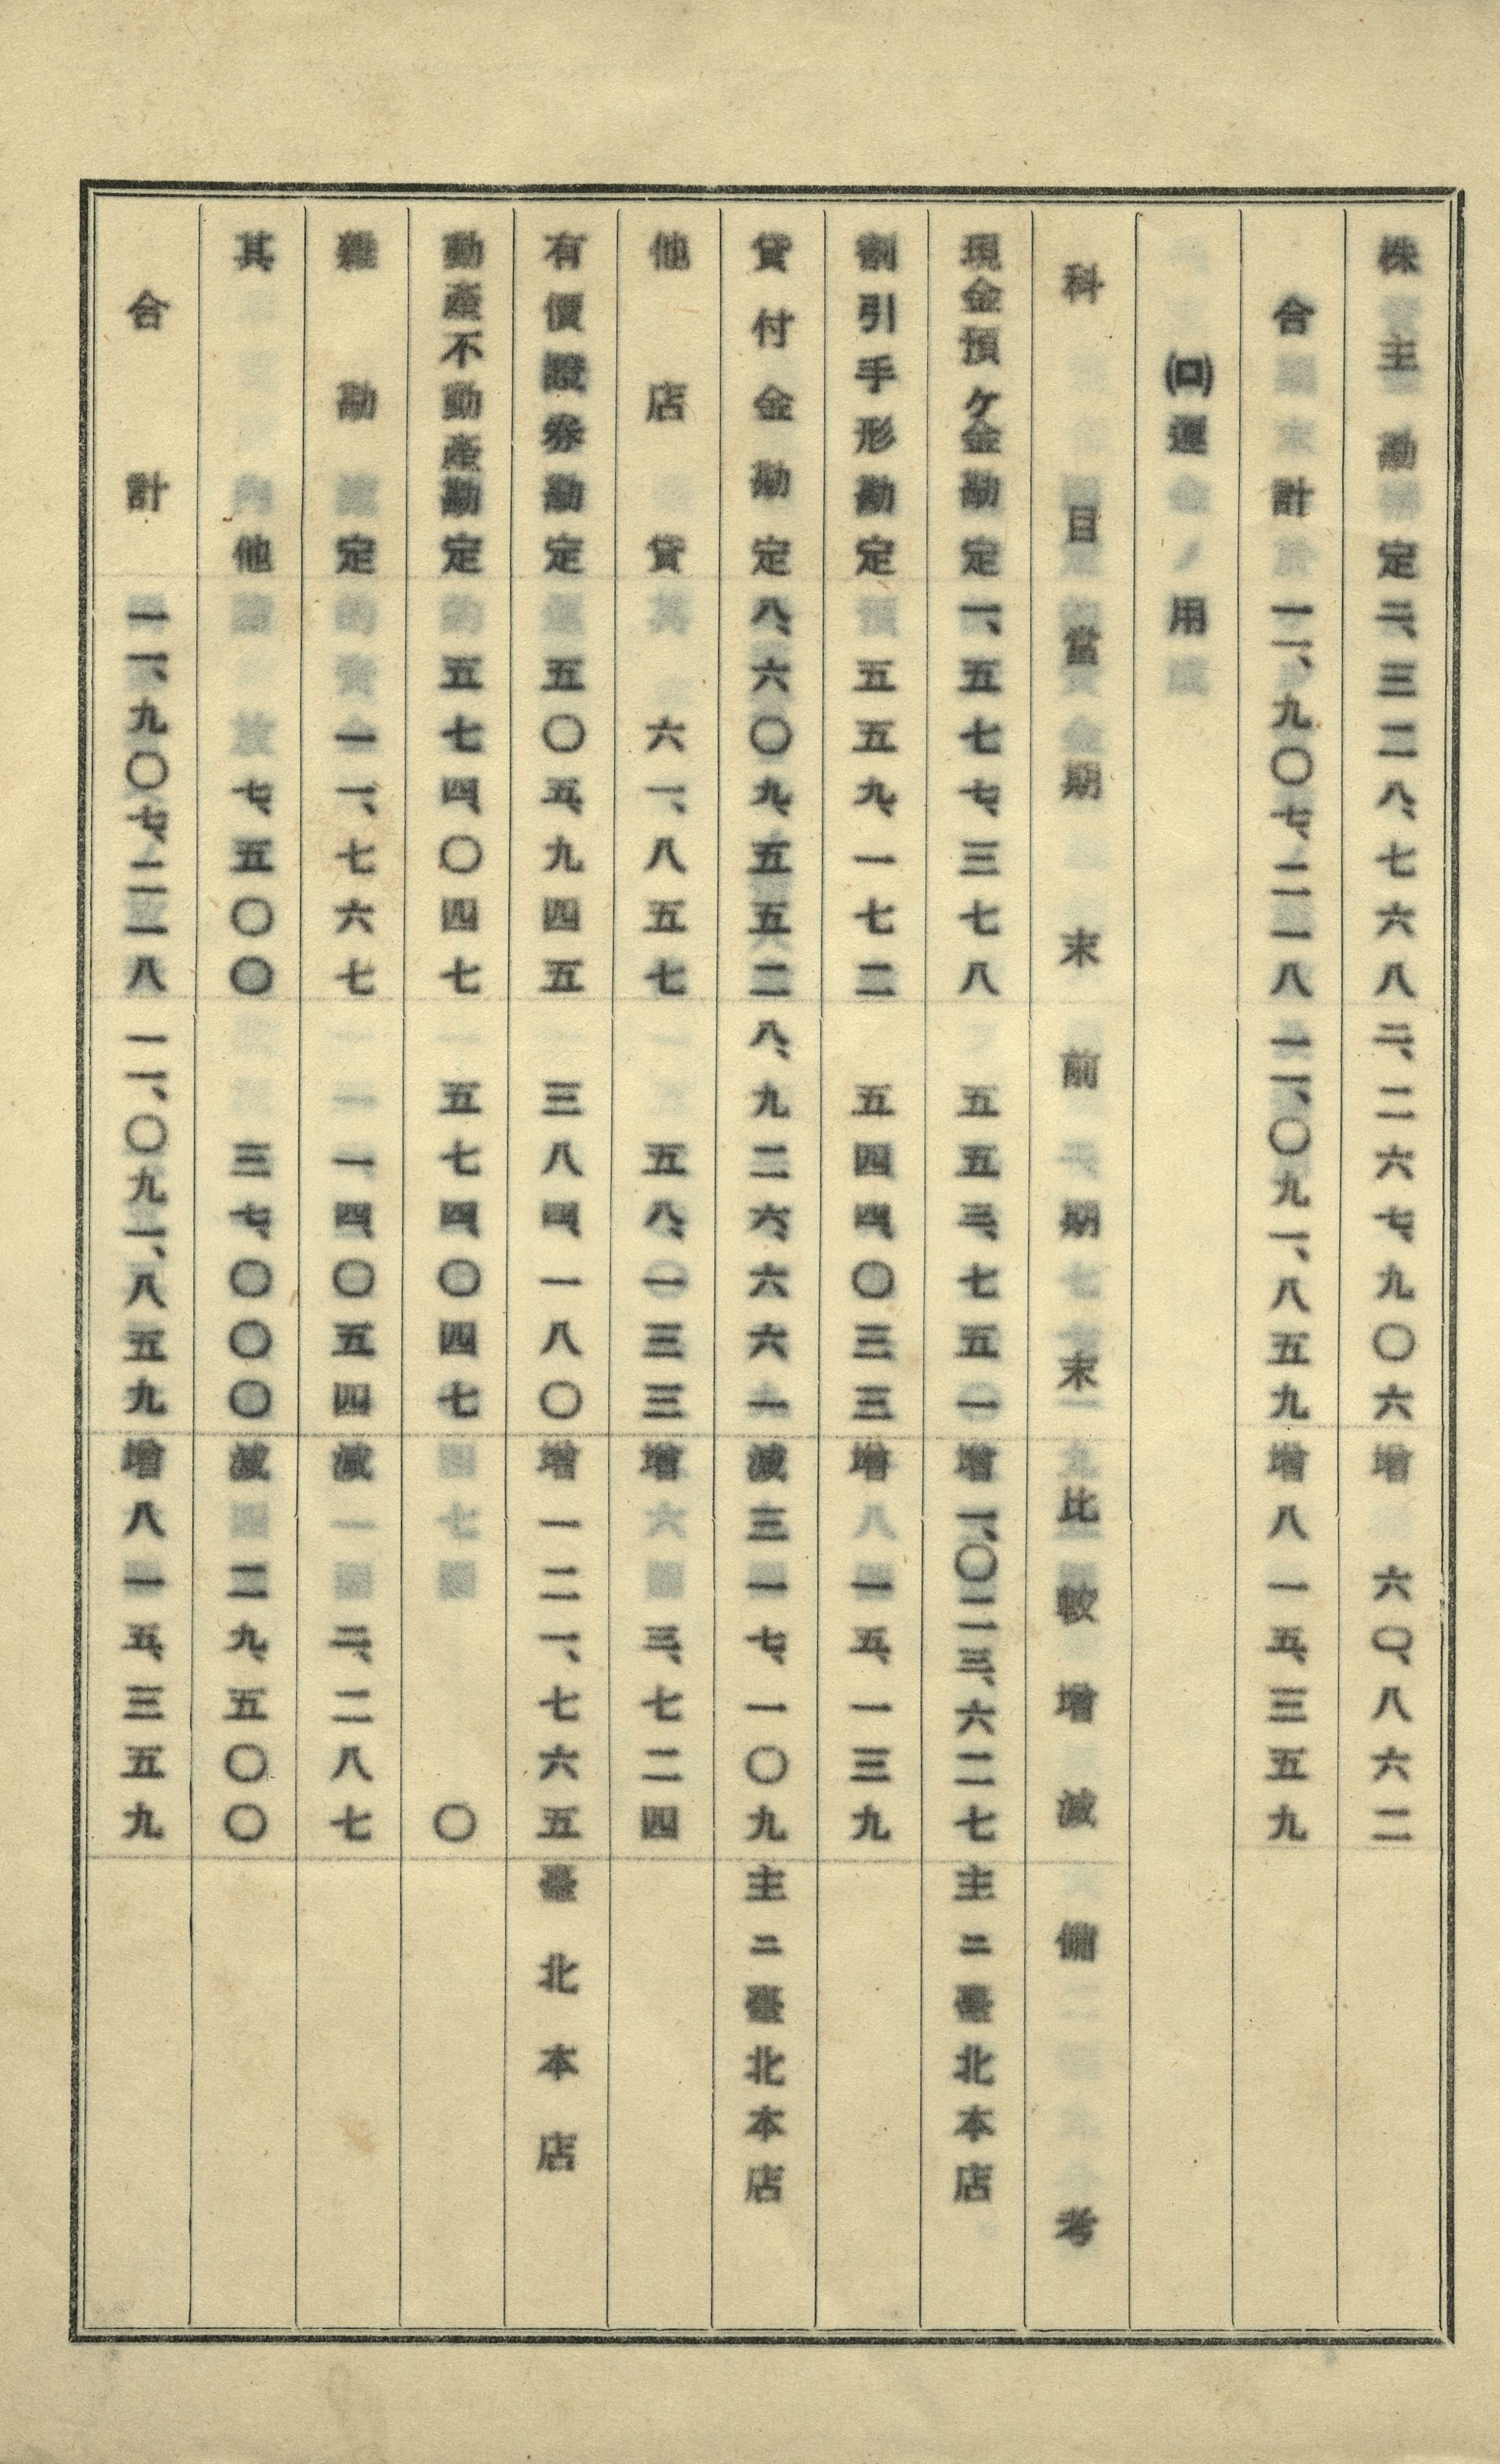 株主勘定 二、三二八、七六八 二、二六七、九〇六 增 六〇、八六二
合計 一一、九〇七、二一八 一一、〇九一、八五九 增八一五、三五九
㈺運用
科目 當期末 前期末 比較增減 備考
現金預ケ金勘定 一、五七七、三七八 五五三、七五一 增一、〇二三、六二七 主ニ臺北本店
割引手形勘定 五五九、一七二 五四四、〇三三 增一五、一三九
貸付金勘定 八、六〇九、五五二 八、九二六、六六一 減三一七、一〇九 主ニ臺北本店
他店貸 六一、八五七 五八、一三三 增三、七二四
有價證券勘定 五〇五、九四五 三八四、一八〇 增一二一、七六五 臺北本店
動產不動產勘定 五七四、〇四七 五七四、〇四七 〇
雜勘定 一一、七六七 一四、〇五四 減二、二八七
其他 七、五〇〇 三七、〇〇〇 減二九、五〇〇
合計 一一、九〇七、二一八 一一、〇九一、八五九 增八一五、三五九